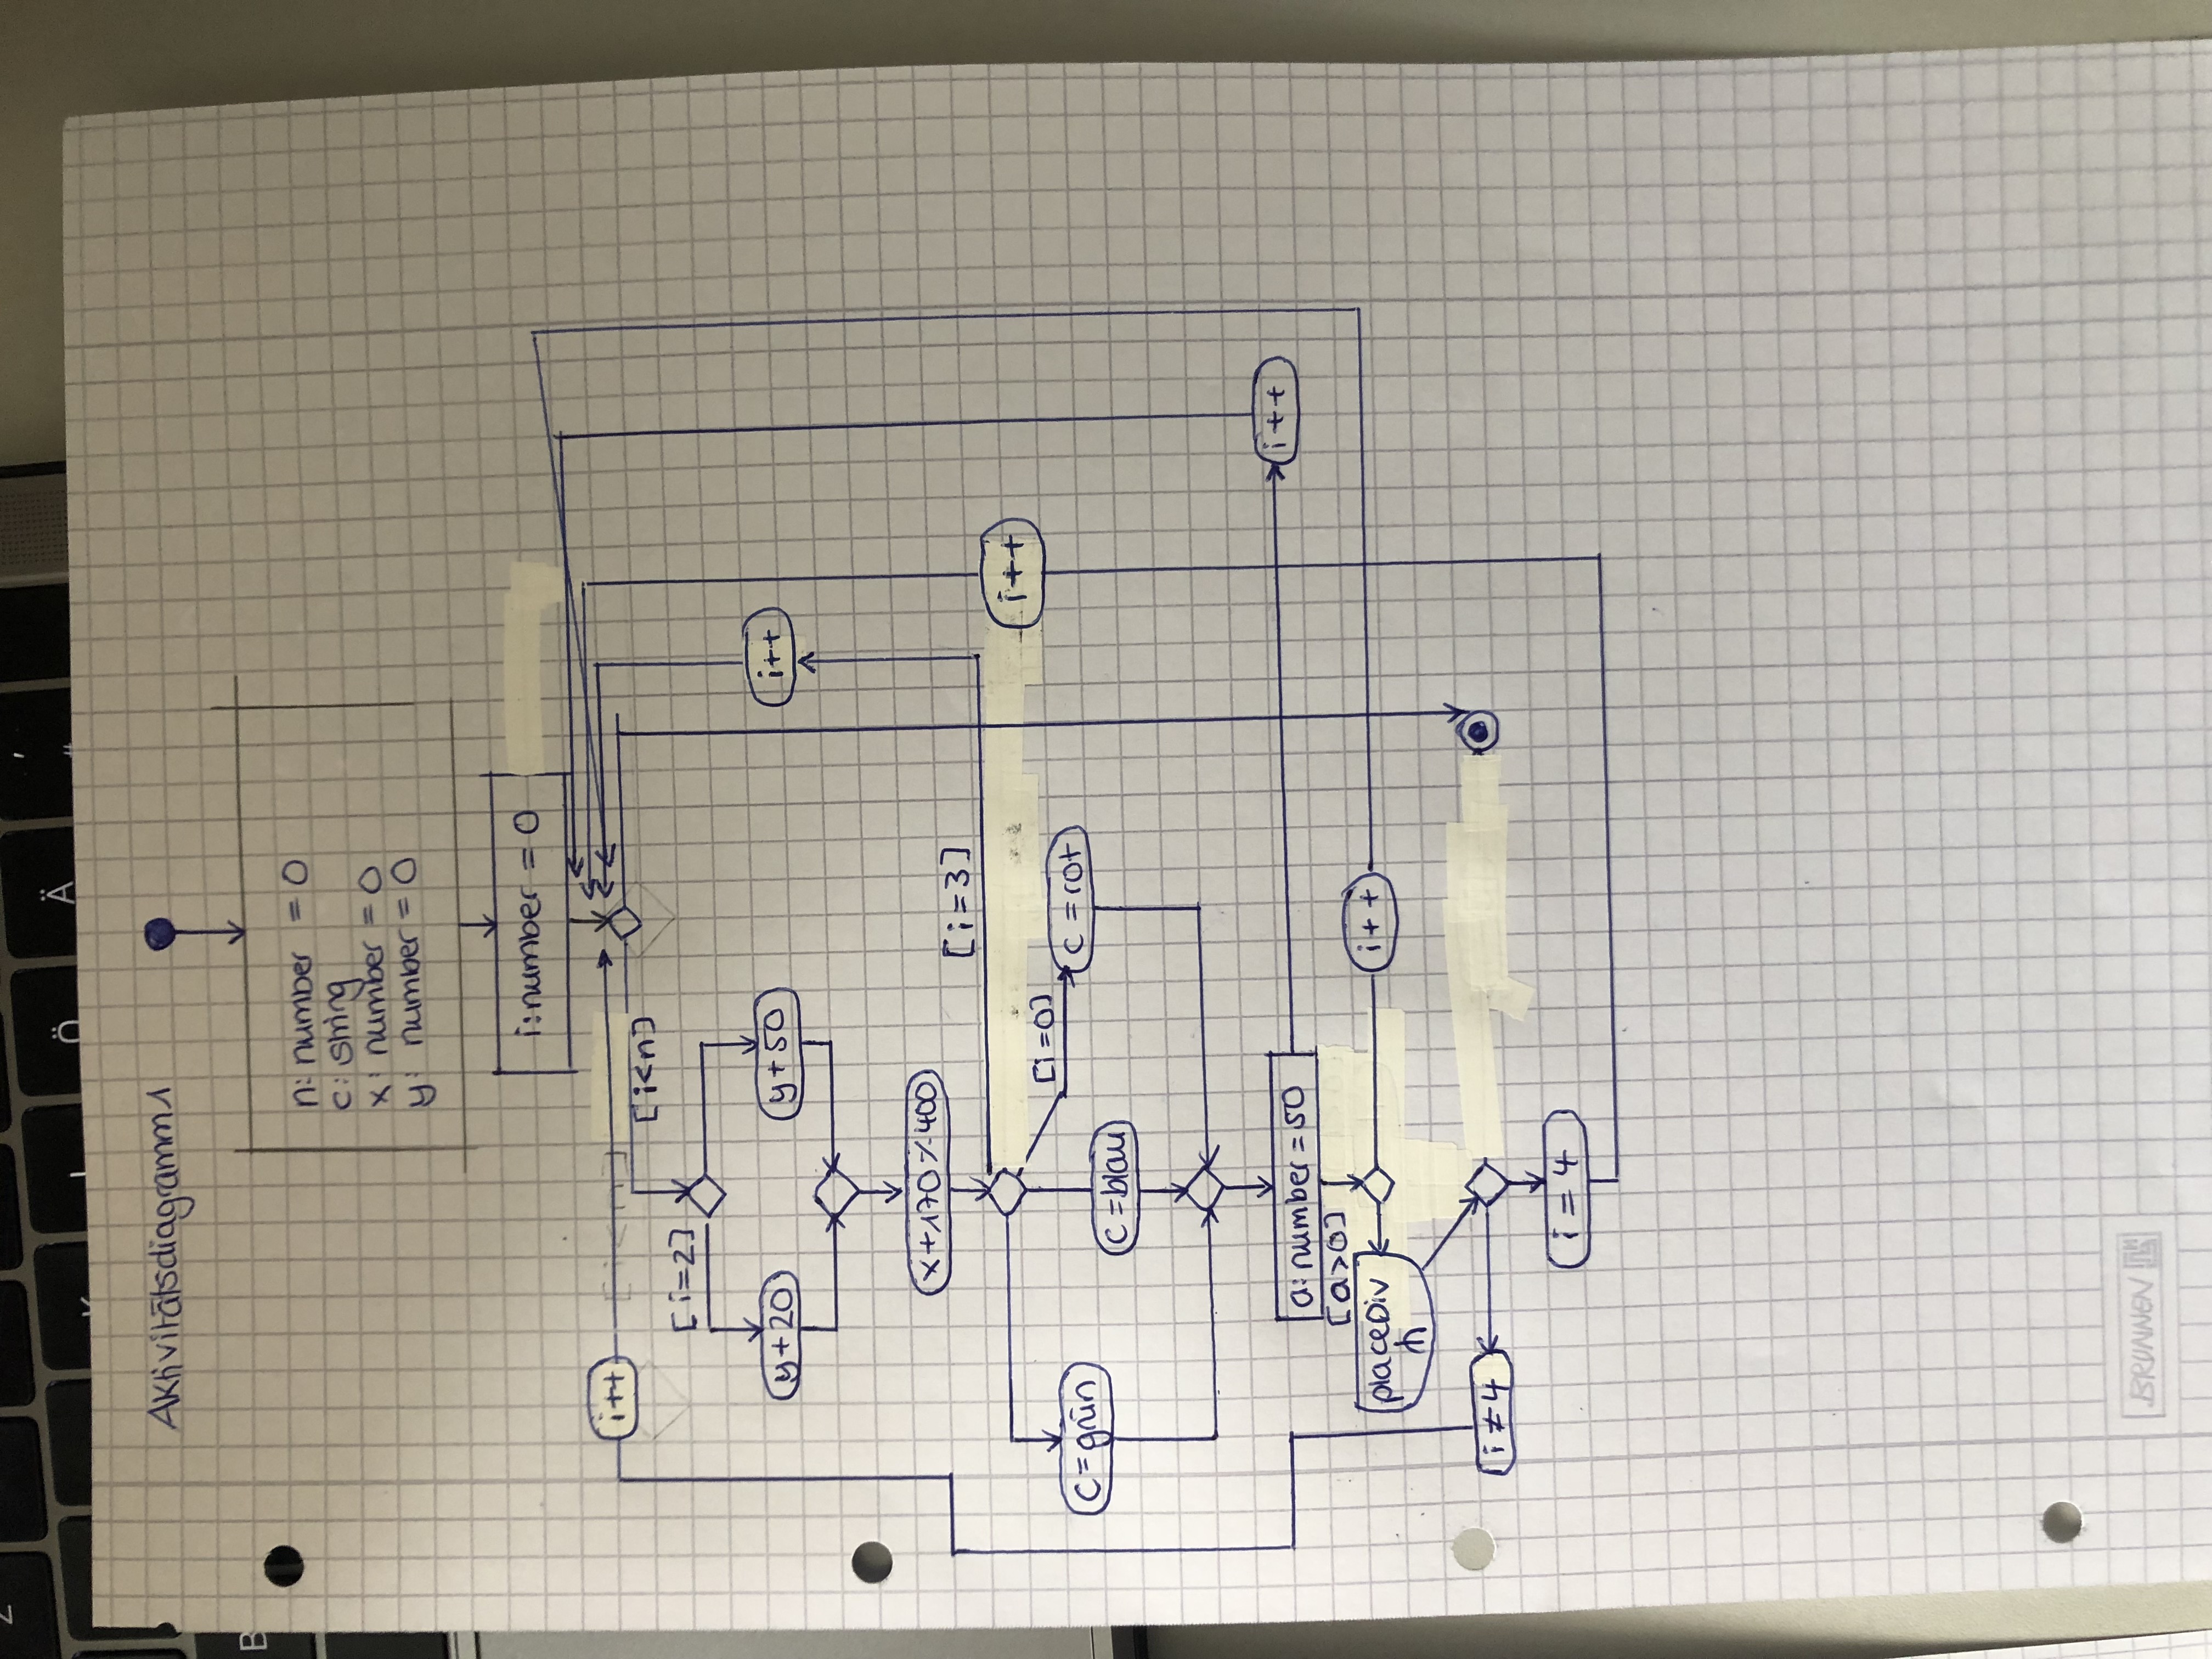 Ö
Ä
#
B
Aktivitätsdiagramm 1
n: number = 0
c: string
x: number = 0
y: number = 0
i: number = 0
i++
[i<n]
[i<n]
[i=2]
y+20
y+50
i++
x+170%400
[i=3]
i++
[i=0]
c=grün
c=rot
c=blau
a: number = 50
i++
[a>0]
placeDiv
i++
i≠4
i = 4
BRUNNEN